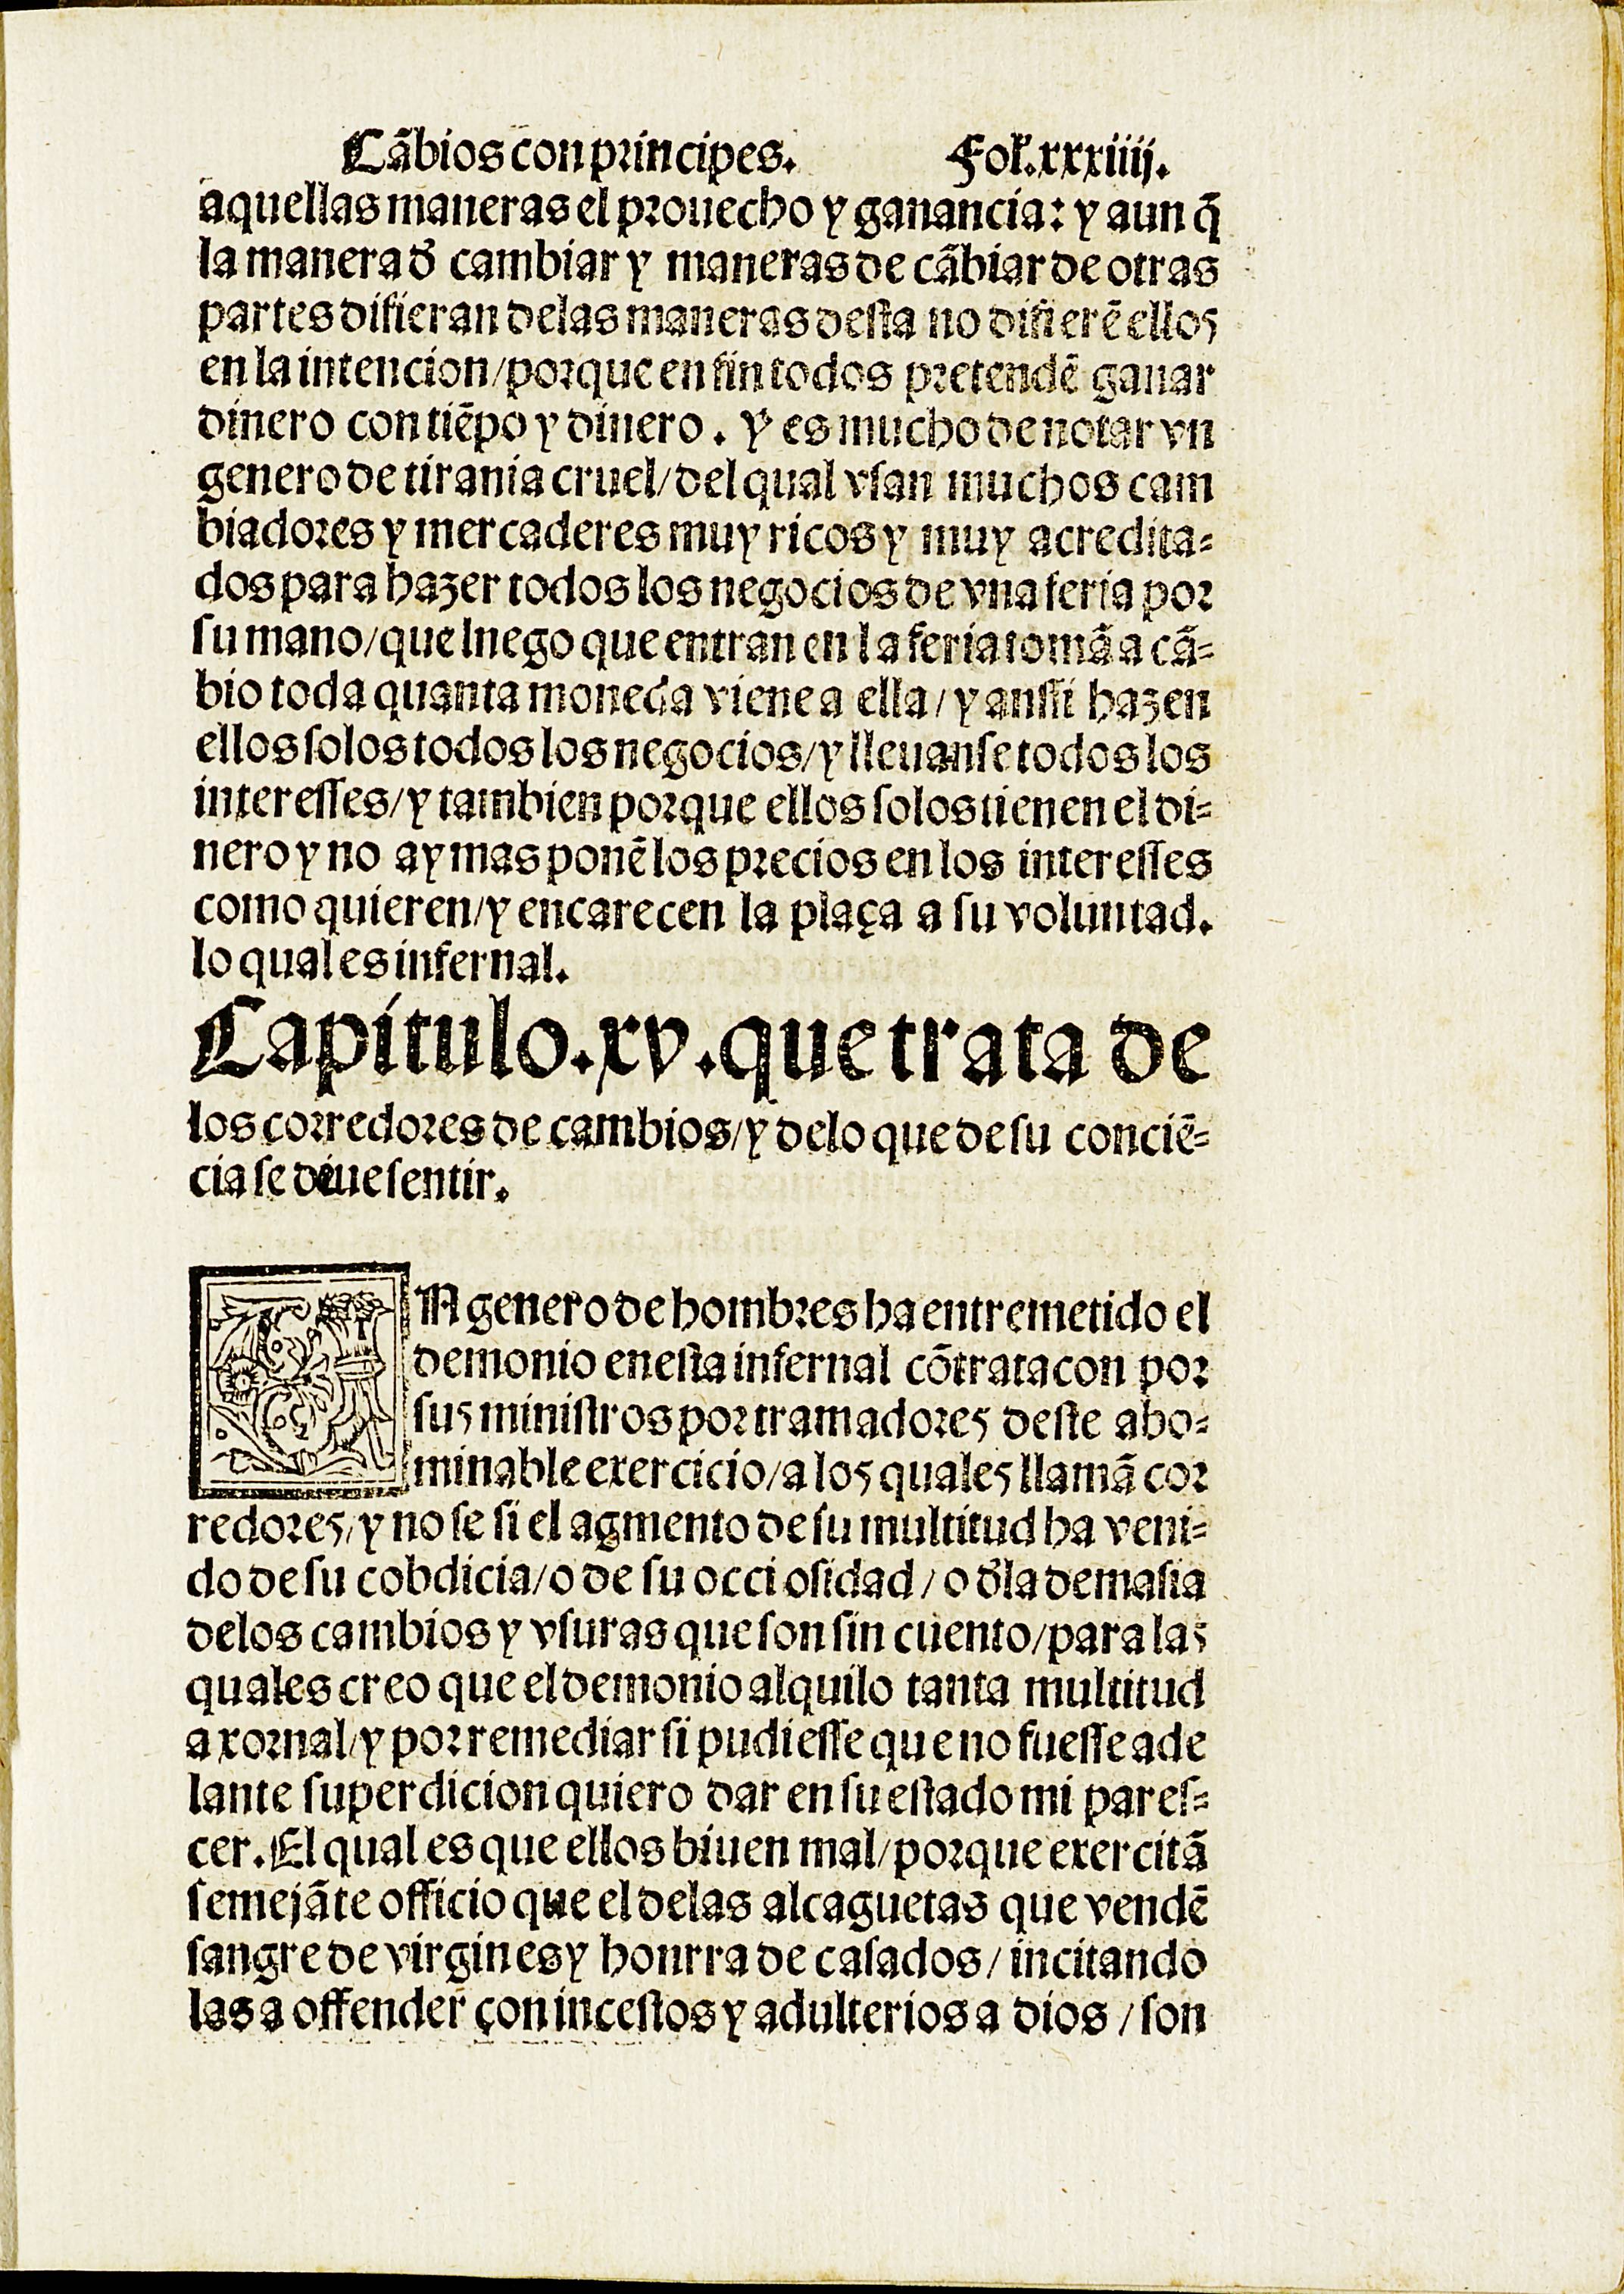 Cãbios con principes. Fol.xxxiiij.
aquellas maneras el prouecho y ganancia: y aun q̃
la manera đ cambiar y maneras de cãbiar de otras
partes difieran delas maneras desta no difierẽ ellos
en la intencion/porque en fin todos pretendẽ ganar
dinero con tiẽpo y dinero. Y es mucho de notar vn
genero de tirania cruel/del qual vsan muchos cam
biadores y mercaderes muy ricos y muy acredita-
dos para hazer todos los negocios de vna feria por
su mano/que lnego que entran en la feria tomã a cã-
bio toda quanta moneda viene a ella/y anssi hazen
ellos solos todos los negocios/y lleuanse todos los
interesses/y tambien porque ellos solos tienen el di-
nero y no ay mas ponẽ los precios en los interesses
como quieren/y encarecen la plaça a su voluntad.
lo qual es infernal.
Capitulo.xv.que trata de
los corredores de cambios/y delo que de su conciẽ-
cia se deue sentir.
VN genero de hombres ha entremetido el
demonio enesta infernal cõtratacon por
sus ministros por tramadores deste abo-
minable exercicio/a los quales llamã cor
redores/y no se si el agmento de su multitud ha veni-
do de su cobdicia/o de su occiosidad/o đla demasia
delos cambios y vsuras que son sin cuento/para las
quales creo que el demonio alquilo tanta multitud
a xornal/y por remediar si pudiesse que no fuesse ade
lante su perdicion quiero dar en su estado mi pares-
cer. El qual es que ellos biuen mal/porque exercitã
semejãte officio que el delas alcaguetas que vendẽ
sangre de virgines y honrra de casados/incitando
las a offender con incestos y adulterios a dios/son